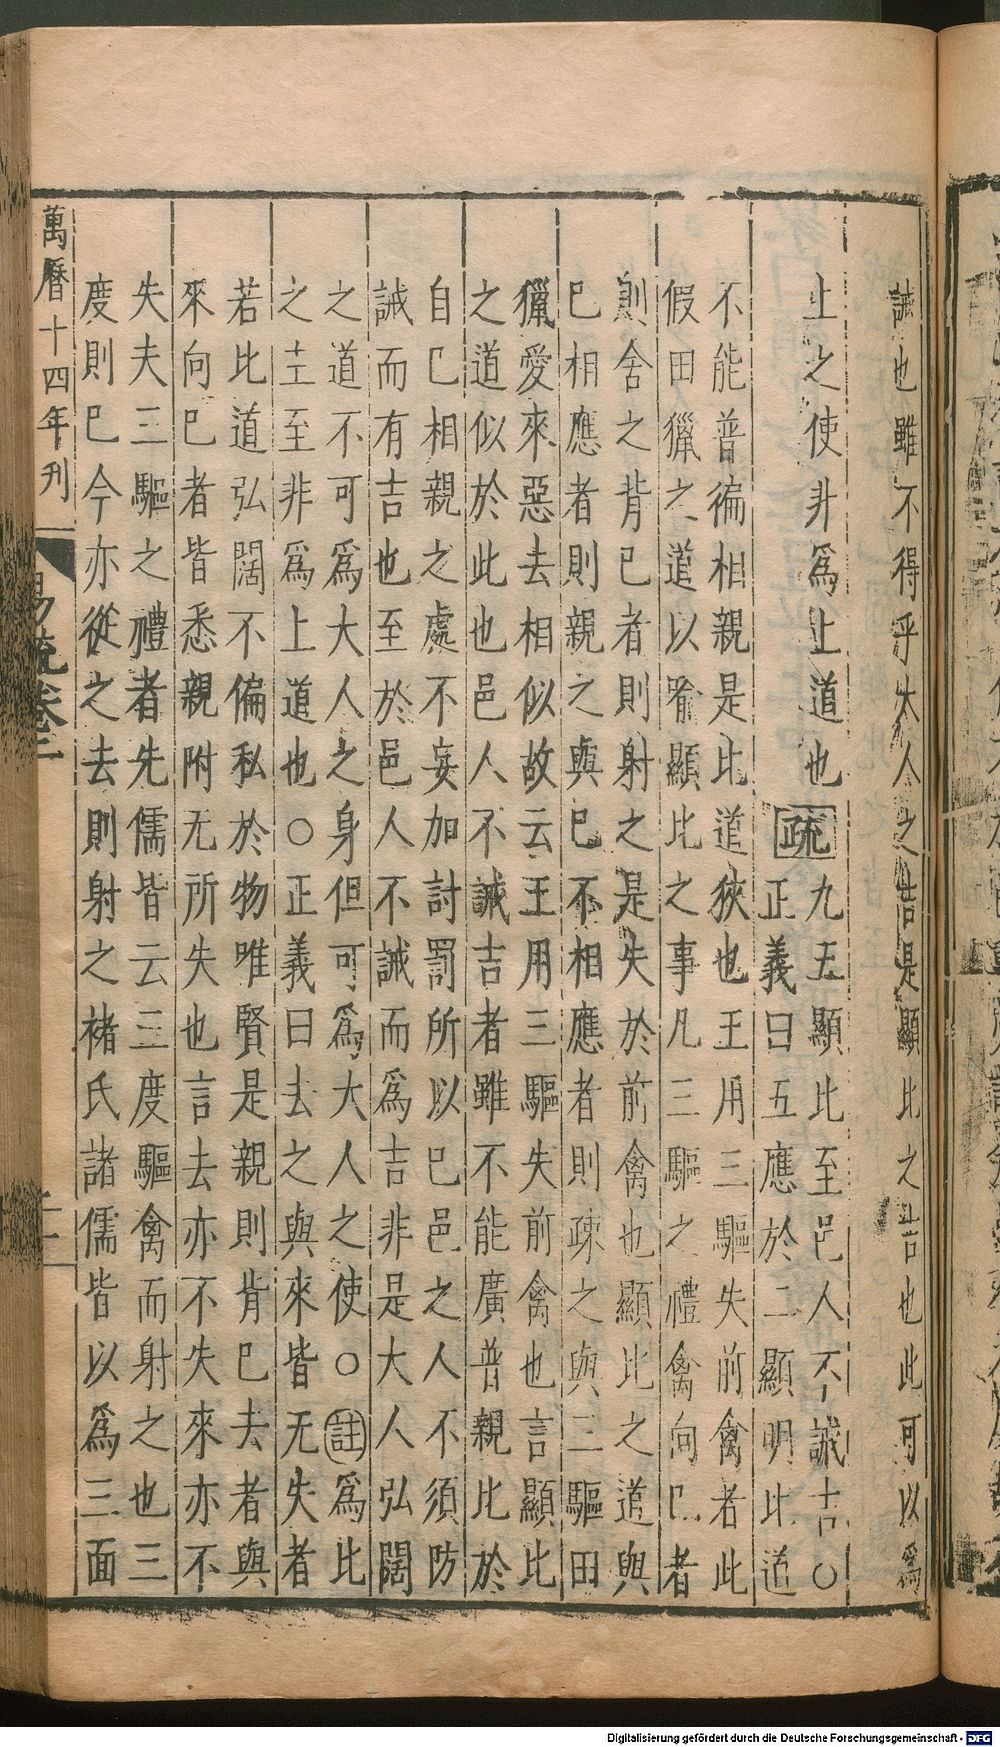 誡也雖不得乎大人之吉是顯比之吉也此可以爲
上之使非爲上道也疏九五顯比至邑人不誡吉○
正義曰五應於二顯明比道
不能普徧相親是比道狹也王用三驅失前禽者此
假田獵之道以喻顯比之事凡三驅之禮禽向巳者
則舍之背巳者則射之是失於前禽也顯比之道與
巳相應者則親之與巳不相應者則疎之與三驅田
獵愛來惡去相似故云王用三驅失前禽也言顯比
之道似於此也邑人不誡吉者雖不能廣普親比於
自巳相親之處不妄加討罰所以巳邑之人不須防
誡而有吉也至於邑人不誡而爲吉非是大人弘闊
之道不可爲大人之身但可爲大人之使○註爲比
之主至非爲上道也○正義曰去之與來皆无失者
若比道弘闊不偏私於物唯賢是親則背巳去者與
來向巳者皆悉親附无所失也言去亦不失來亦不
失夫三驅之禮者先儒皆云三度驅禽而射之也三
度則巳今亦從之去則射之褚氏諸儒皆以爲三面
萬曆十四年刊
易疏卷二